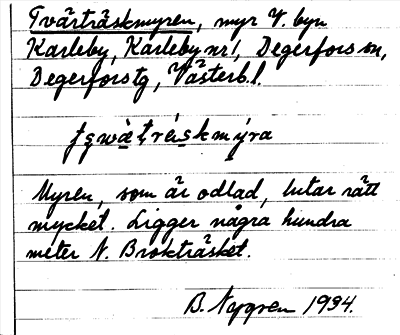 Tvärträskmyren, myr V. byn
Karleby, Karleby nr 1, Degerfors sn,
Degerfors tg, Västerb. l.
Myren, som är odlad, lutar rätt
mycket. Ligger några hundra
meter N. Brokträsket.
B. Nygren 1934.